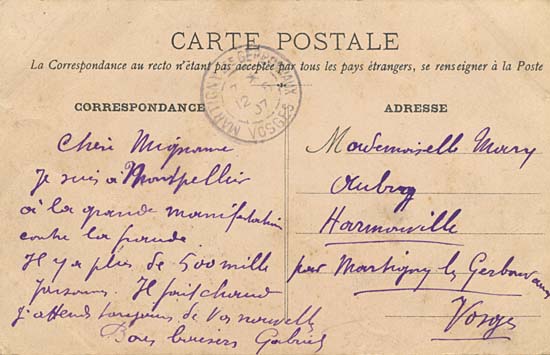 CARTE POSTALE
La Correspondance au recto n'étant pas acceptée par tous les pays étrangers, se renseigner à la Poste
MARTIGNY-LES-GERBONVAUX
12
07
VOSGES
CORRESPONDANCE
Chère Mignonne
Je suis à Montpellier
à la grande manifestation
contre la fraude.
Il y a plus de 500 mille
personnes. Il fait chaud
J'attends toujours de vos nouvelles
Bons baisers Gabriel
ADRESSE
Mademoiselle Mary
Aubry
Harmonville
par Martigny les Gerbonvaux
Vosges